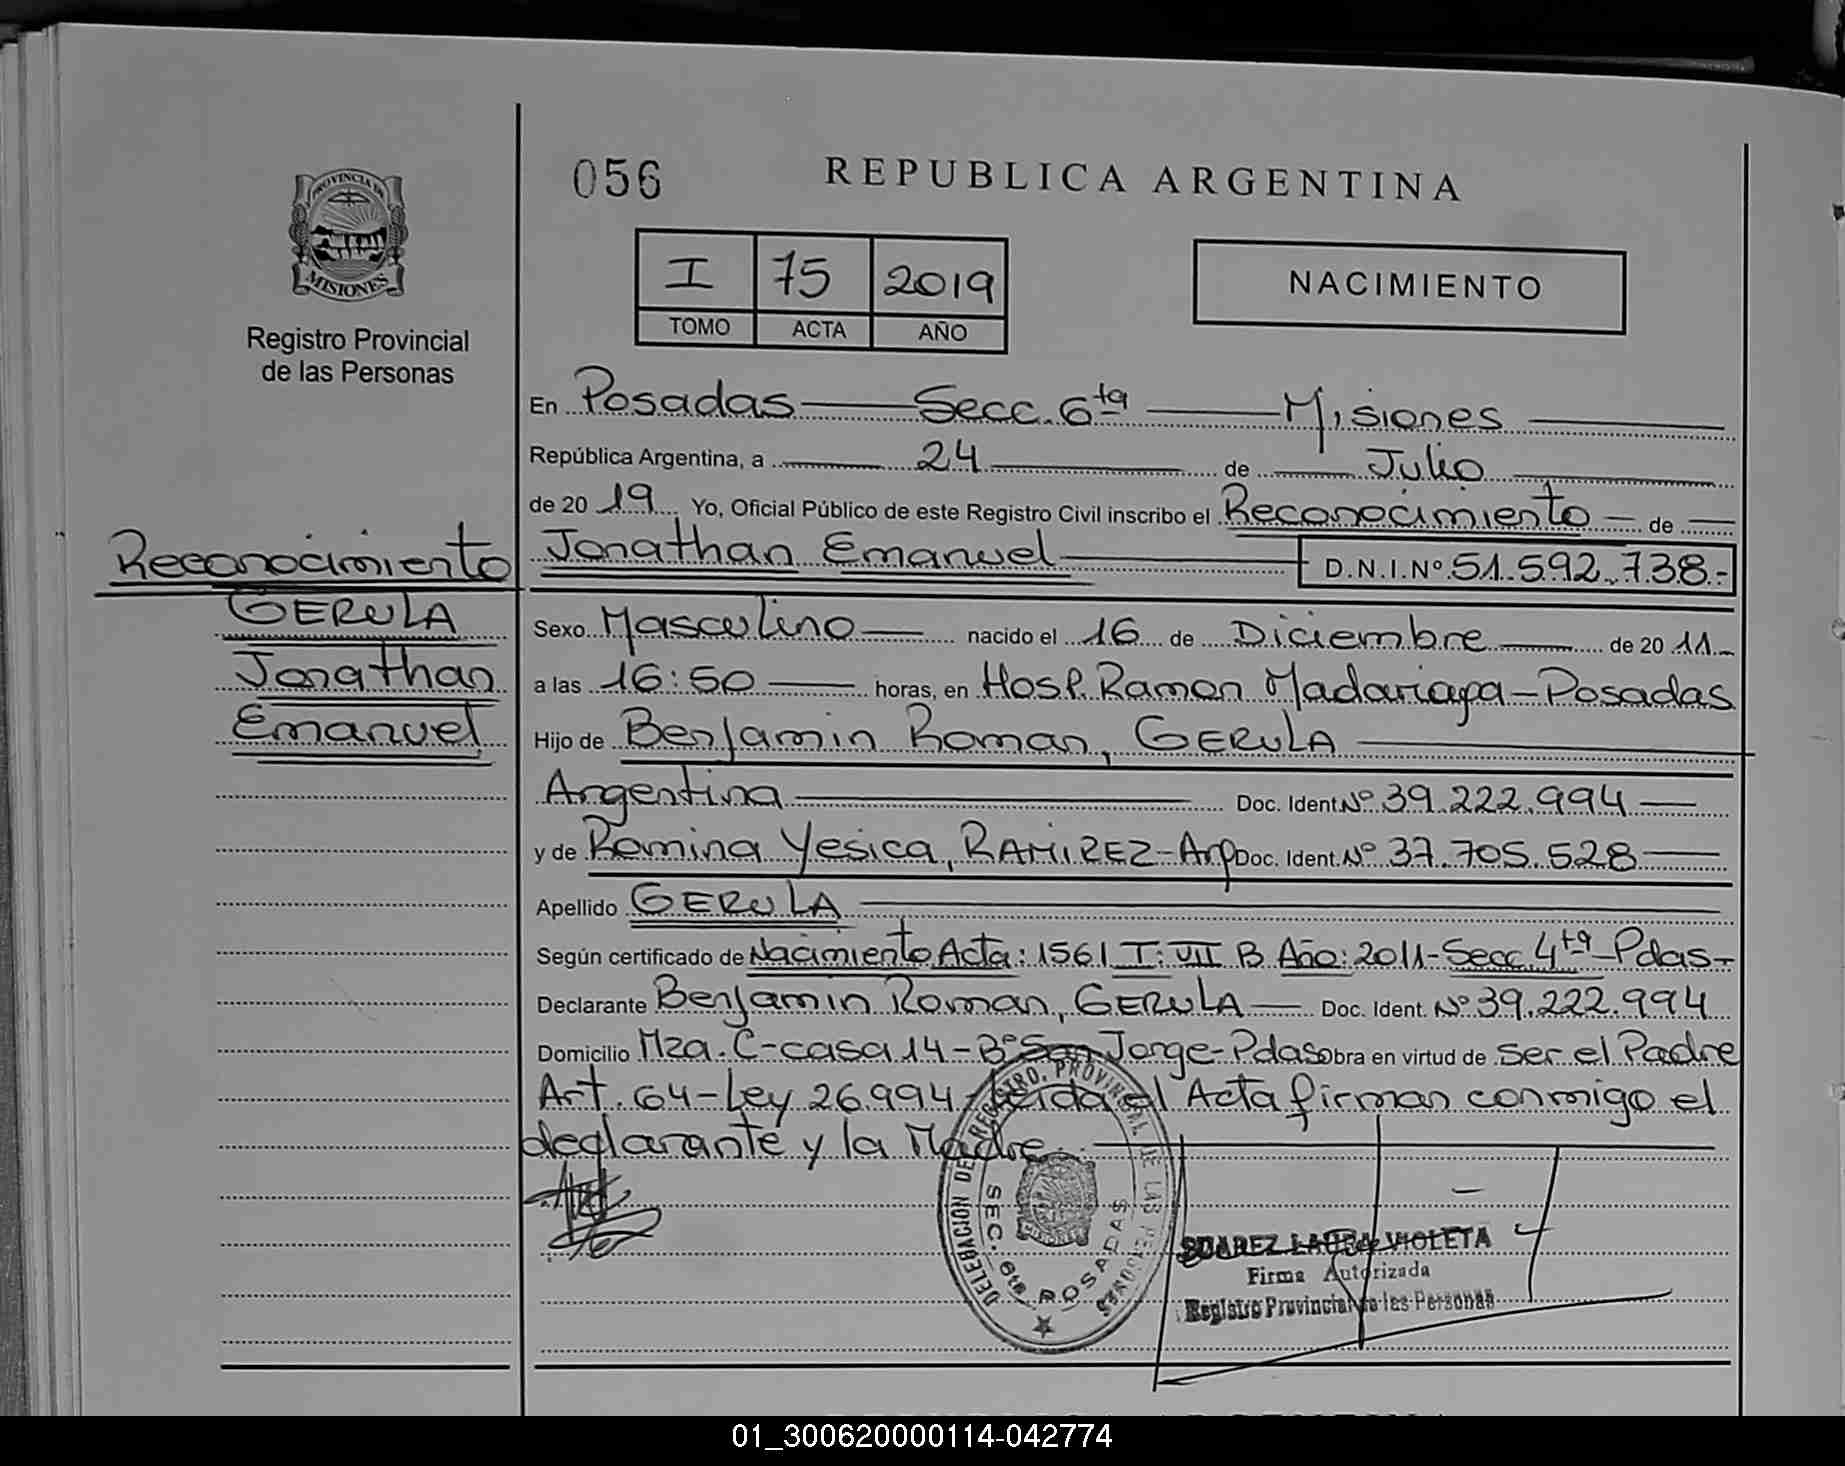 PROVINCIA DE
MISIONES
Registro Provincial
de las Personas
056 REPUBLICA ARGENTINA
I 75 2019
TOMO ACTA AÑO
NACIMIENTO
En Posadas Secc. 6ta Misiones
República Argentina, a 24 de Julio
de 2019 Yo, Oficial Público de este Registro Civil inscribo el Reconocimiento de
Jonathan Emanuel D.N.I. Nº 51.592.738.-
Reconocimiento
GERULA
Jonathan
Emanuel
Sexo Masculino nacido el 16 de Diciembre de 2011
a las 16:50 horas, en Hosp. Ramon Madariaga-Posadas
Hijo de Benjamin Roman, GERULA
Argentina Doc. Ident. Nº 39.222.994
y de Romina Yesica, RAMIREZ-Arg Doc. Ident. Nº 37.705.528
Apellido GERULA
Según certificado de Nacimiento Acta: 1561 T: VII B Año: 2011-Secc 4ta-Pdas-
Declarante Benjamin Roman, GERULA Doc. Ident. Nº 39.222.994
Domicilio Mza. C-casa 14-Bº San Jorge-Pdas Obra en virtud de ser el Padre
Art. 64-Ley 26.994-Leida el Acta firman conmigo el
declarante y la Madre
REGISTRO PROVINCIAL DE LAS PERSONAS
SEC. 6ta POSADAS
SUAREZ LAURA VIOLETA
Firma Autorizada
Registro Provincial de las Personas
01_300620000114-042774